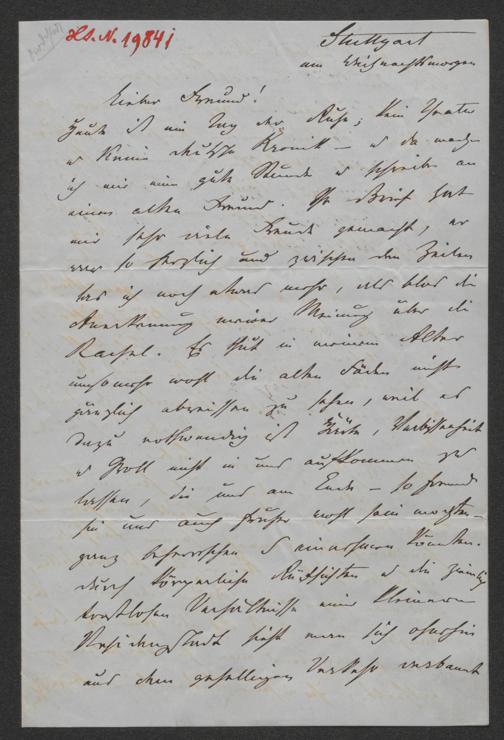 Hs.N.19841
Stuttgart
am Weihnachtsmorgen
Lieber Freund!
Heute ist ein Tag der Ruhe; kein Theater
u keine Chronik – u da mache
ich mir eine gute Stunde u schreibe an
einen alten Freund. Ihr Brief hat
mir sehr viele Freude gemacht, er
war so herzlich und zwischen den Zeilen
las ich noch etwas mehr, als blos die
Anerkennung meiner Meinung über die
Rachel. Es thut in meinem Alter
umsomehr wohl die alten Fäden nicht
gänzlich abreissen zu sehen, weil es
dazu nothwendig ist Härte, Verbissenheit
u Groll nicht in uns aufkommen zu
lassen, die uns am Ende – so fremd
sie uns auch früher wohl sein mochten –
ganz beherrschen u einnehmen könnten.
Durch körperliche Rücksichten u die ziemlich
trostlosen Verhältnisse einer kleineren
Residenzstadt sieht man sich ohnehin
aus dem geselligen Verkehr verbannt